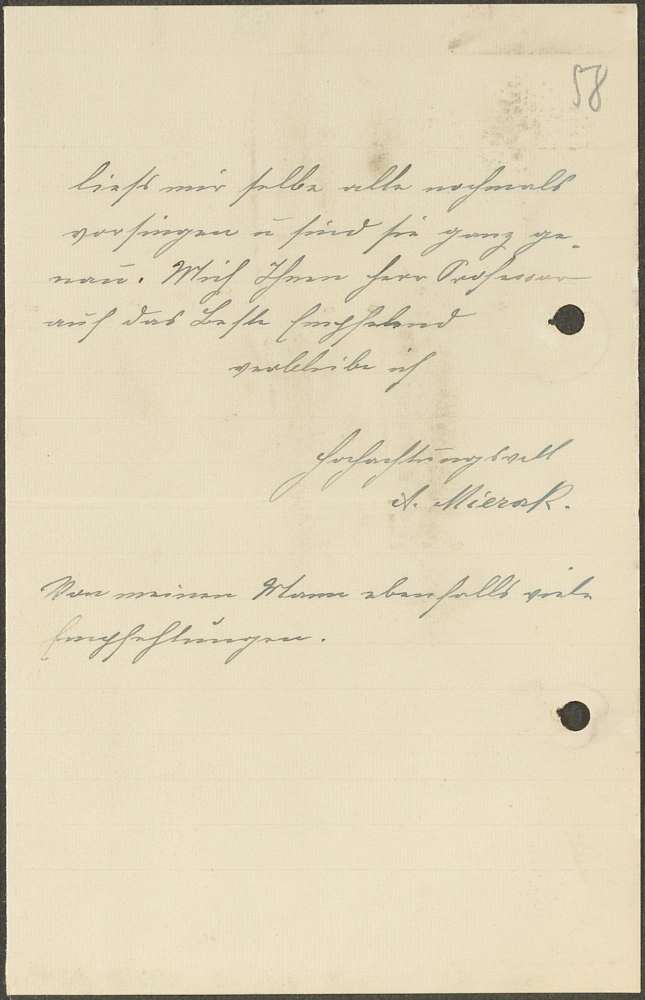 58
ließ mir selbe alle nochmals
vorsingen u sind sie ganz ge-
nau. Mich Ihnen Herr Professor
auf das Beste Empfelend
verbleibe ich
Hochachtungsvoll
A. Mierak.
Von meinen Mann ebenfalls viele
Empfehlungen.